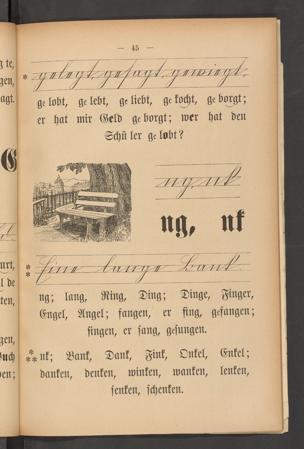 — 45 —
* gelegt, gesagt, gewiegt.
ge lobt, ge lebt, ge liebt, ge kocht, ge borgt;
er hat mir Geld ge borgt; wer hat den
Schü ler ge lobt?
ng, nk
ng, nk
* Eine lange Bank
ng; lang, Ring, Ding; Dinge, Finger,
Engel, Angel; fangen, er fing, gefangen;
singen, er sang, gesungen.
** nk; Bank, Dank, Fink, Onkel, Enkel;
danken, denken, winken, wanken, lenken,
senken, schenken.